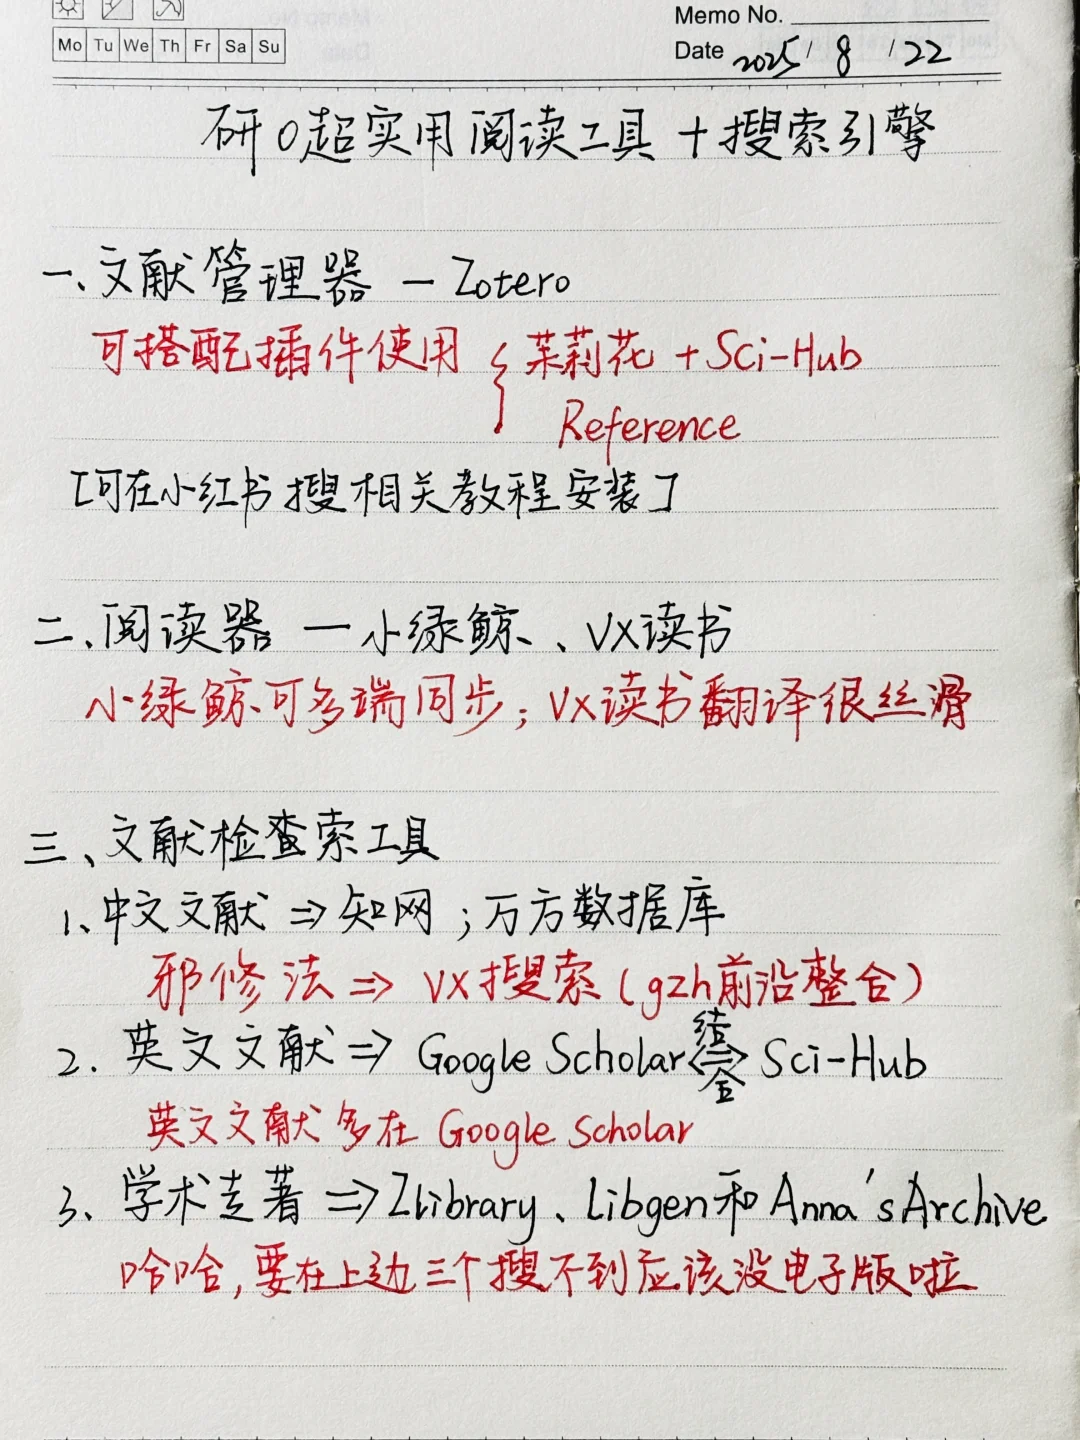 Memo No.
Mo Tu We Th Fr Sa Su
Date 2025/8/22
研0超实用阅读工具+搜索引擎
一、文献管理器 — Zotero
可搭配插件使用 { 茉莉花 + Sci-Hub
Reference
[可在小红书搜相关教程安装]
二、阅读器 — 小绿鲸、VX读书
小绿鲸可多端同步；VX读书翻译很丝滑
三、文献检查索工具
1、中文文献 => 知网；万方数据库
邪修法 => VX搜索(gzh前沿整合)
2. 英文文献 => Google Scholar <=> Sci-Hub
结合
英文文献多在 Google Scholar
3、学术专著 => Zlibrary、Libgen和Anna's Archive
哈哈，要在上边三个搜不到应该没电子版啦